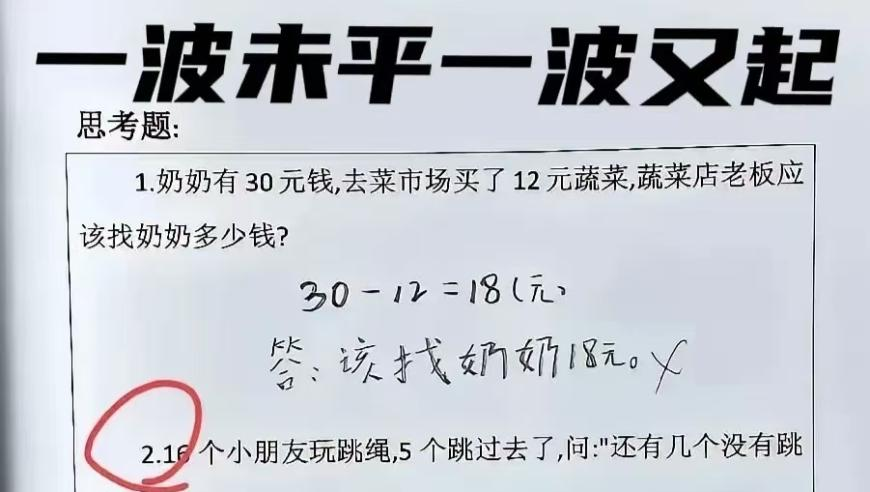 一波未平一波又起
思考题:
1.奶奶有30元钱,去菜市场买了12元蔬菜,蔬菜店老板应
该找奶奶多少钱?
30-12=18(元)
答:该找奶奶18元。×
2.16个小朋友玩跳绳,5个跳过去了,问:"还有几个没有跳